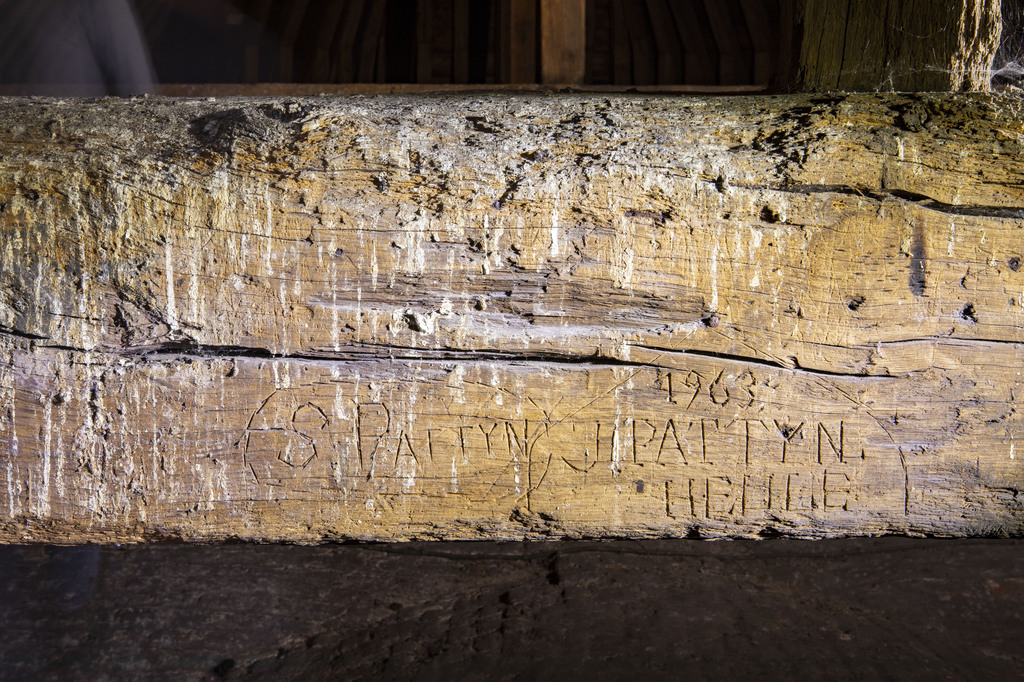 1963
S PATTYN J PATTYN.
HEULE